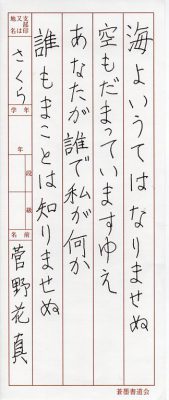 海よいうてはなりませぬ
空もだまっていますゆえ
あなたが誰で私が何か
誰もまことは知りませぬ
支部印又は地名
さくら
学年
年
段級
名前
菅野花真
蒼墨書道会